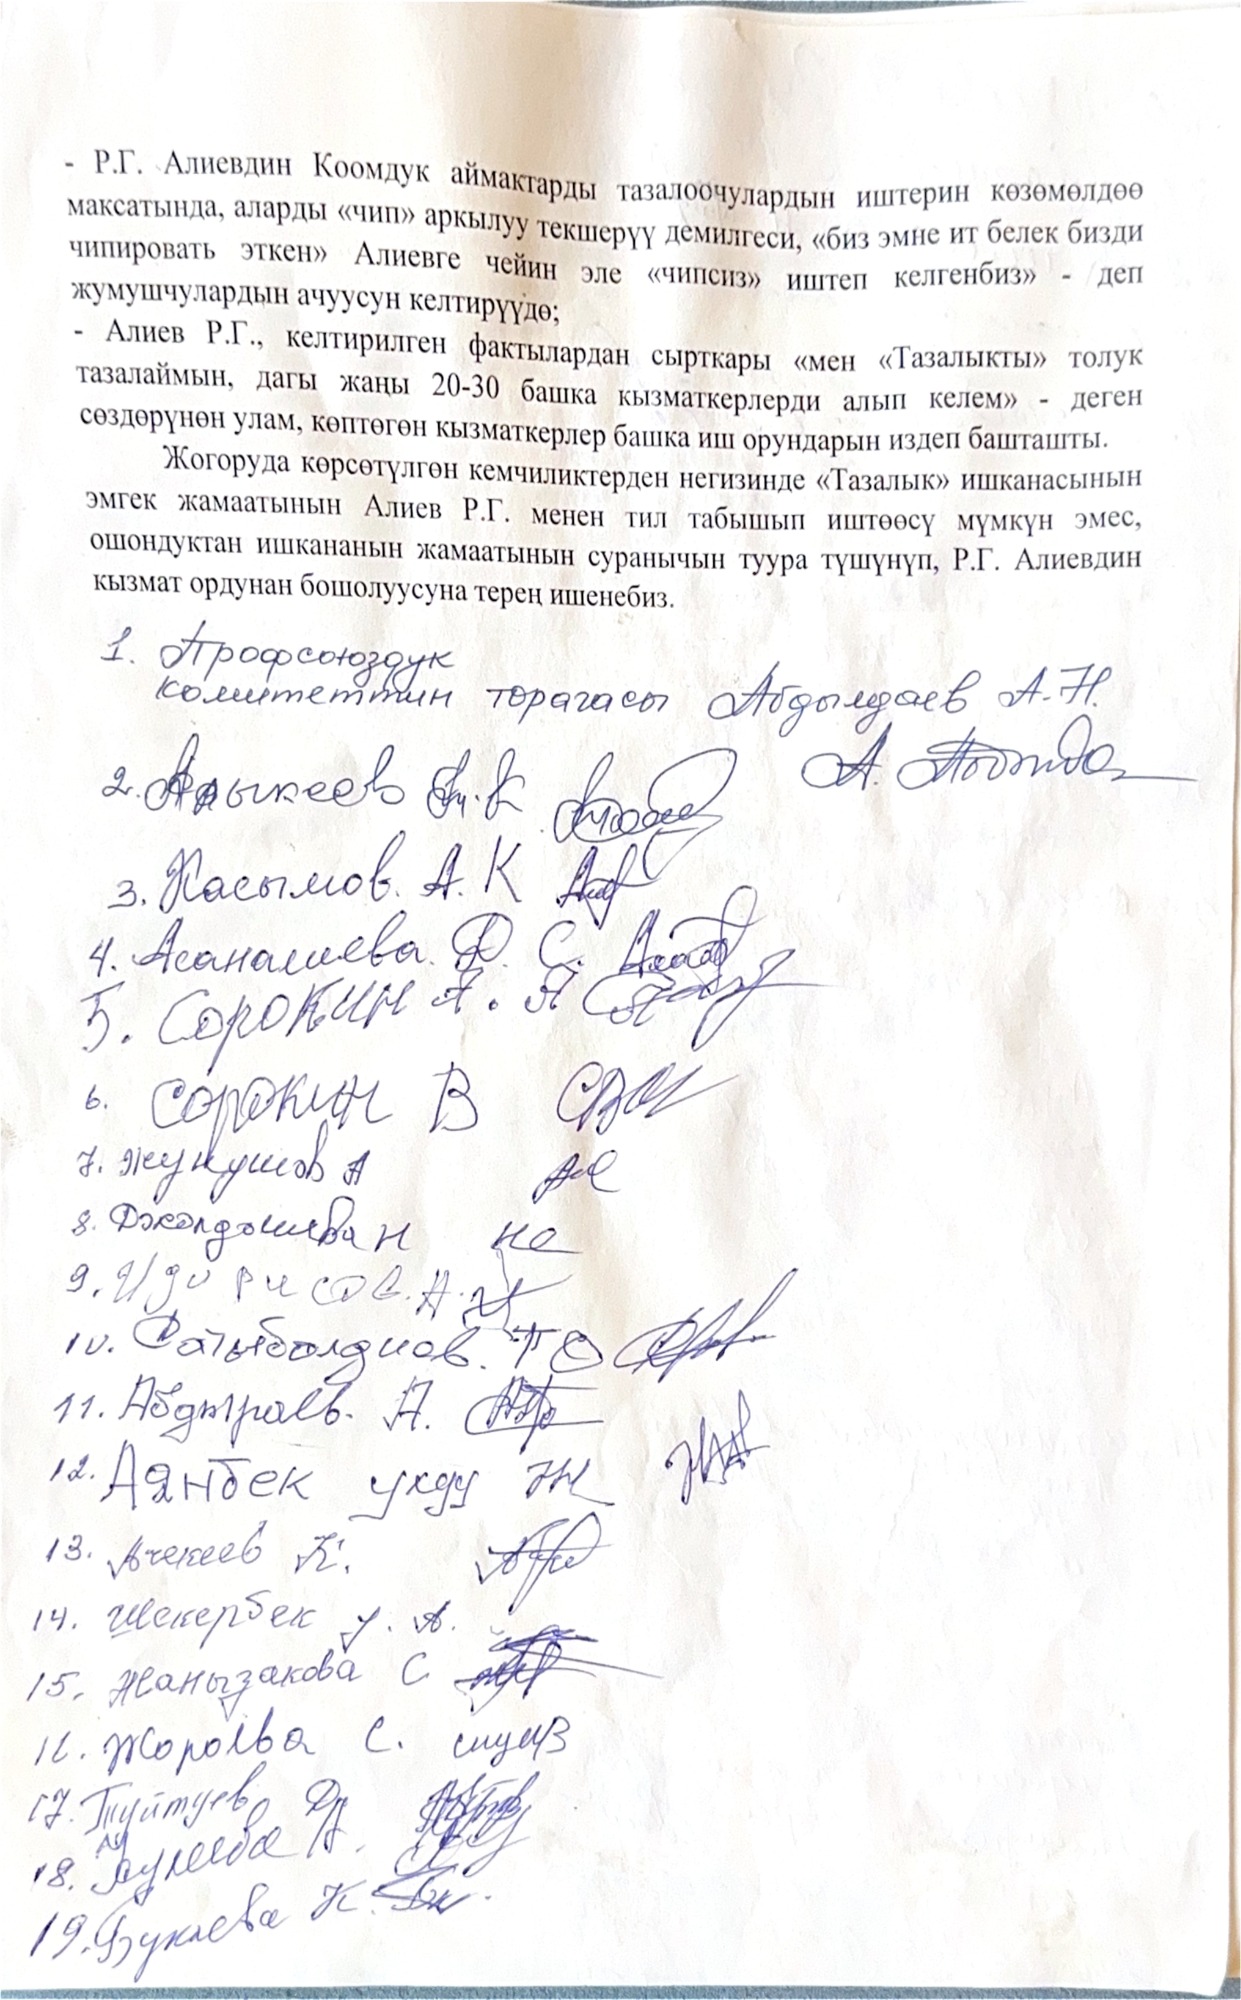 - Р.Г. Алиевдин Коомдук аймактарды тазалоочулардын иштерин көзөмөлдөө
максатында, аларды «чип» аркылуу текшерүү демилгеси, «биз эмне ит белек бизди
чипировать эткен» Алиевге чейин эле «чипсиз» иштеп келгенбиз» - деп
жумушчулардын ачуусун келтирүүдө;
- Алиев Р.Г., келтирилген фактылардан сырткары «мен «Тазалыкты» толук
тазалаймын, дагы жаңы 20-30 башка кызматкерлерди алып келем» - деген
сөздөрүнөн улам, көптөгөн кызматкерлер башка иш орундарын издеп башташты.
Жогоруда көрсөтүлгөн кемчиликтерден негизинде «Тазалык» ишканасынын
эмгек жамаатынын Алиев Р.Г. менен тил табышып иштөөсү мүмкүн эмес,
ошондуктан ишкананын жамаатынын суранычын туура түшүнүп, Р.Г. Алиевдин
кызмат ордунан бошолуусуна терең ишенебиз.
1. Профсоюздук
комитеттин торагасы Абдылдаев А.Н.
2.
3. Касымов. А. К
4. Асаналиева. С.
5. Сорокин А. Я
6. Сорокин В
7. Жунушов А
8. Н
9. А.
10. Т
11. А.
12. Аянбек уулу Ж
13. К.
14. Шекербек у. А.
15. Жанызакова С
16. Жороева С.
17. Туйтуев
18.
19. Букаева К.